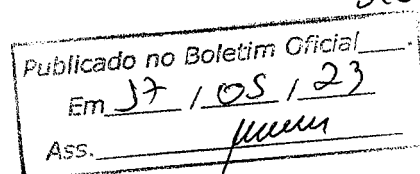 Publicado no Boletim Oficial____.
Em 17 / 05 / 23
Ass.